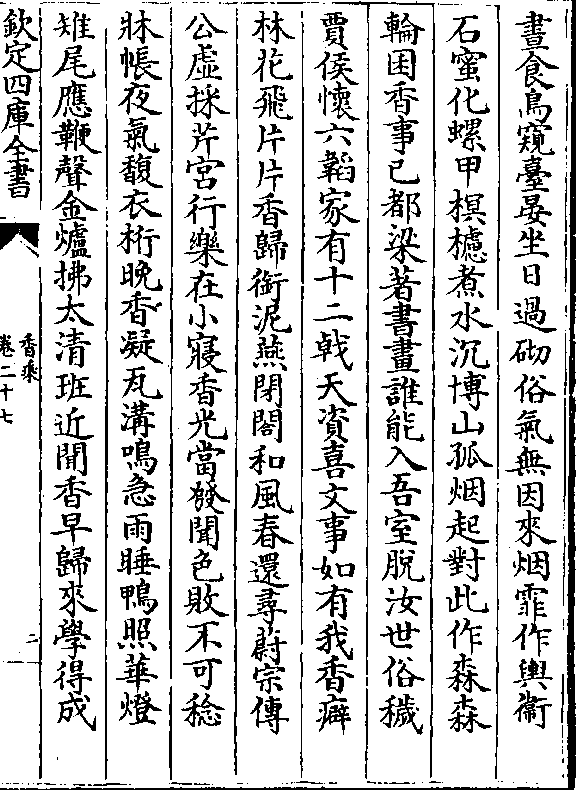 晝食鳥窺臺晏坐日過砌俗氣無因來烟霏作輿衞
石蜜化螺甲榠樝煮水沉博山孤烟起對此作森森
輪囷香事已都梁著書畫誰能入吾室脫汝世俗穢
賈侯懷六韜家有十二㦸天資喜文事如有我香癖
林花飛片片香歸銜泥燕閉閤和風春還尋蔚宗傳
公虛採芹宮行樂在小寢香光當發聞色敗不可稔
牀帳夜氣馥衣桁晚香凝瓦溝鳴急雨睡鴨照華燈
雉尾應鞭聲金爐拂太清班近聞香早歸來學得成
欽定四庫全書
香乗
卷二十七
二